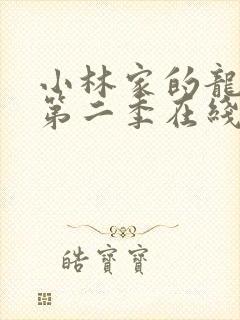 小林家的龍
第二季在綫
皓寶寶